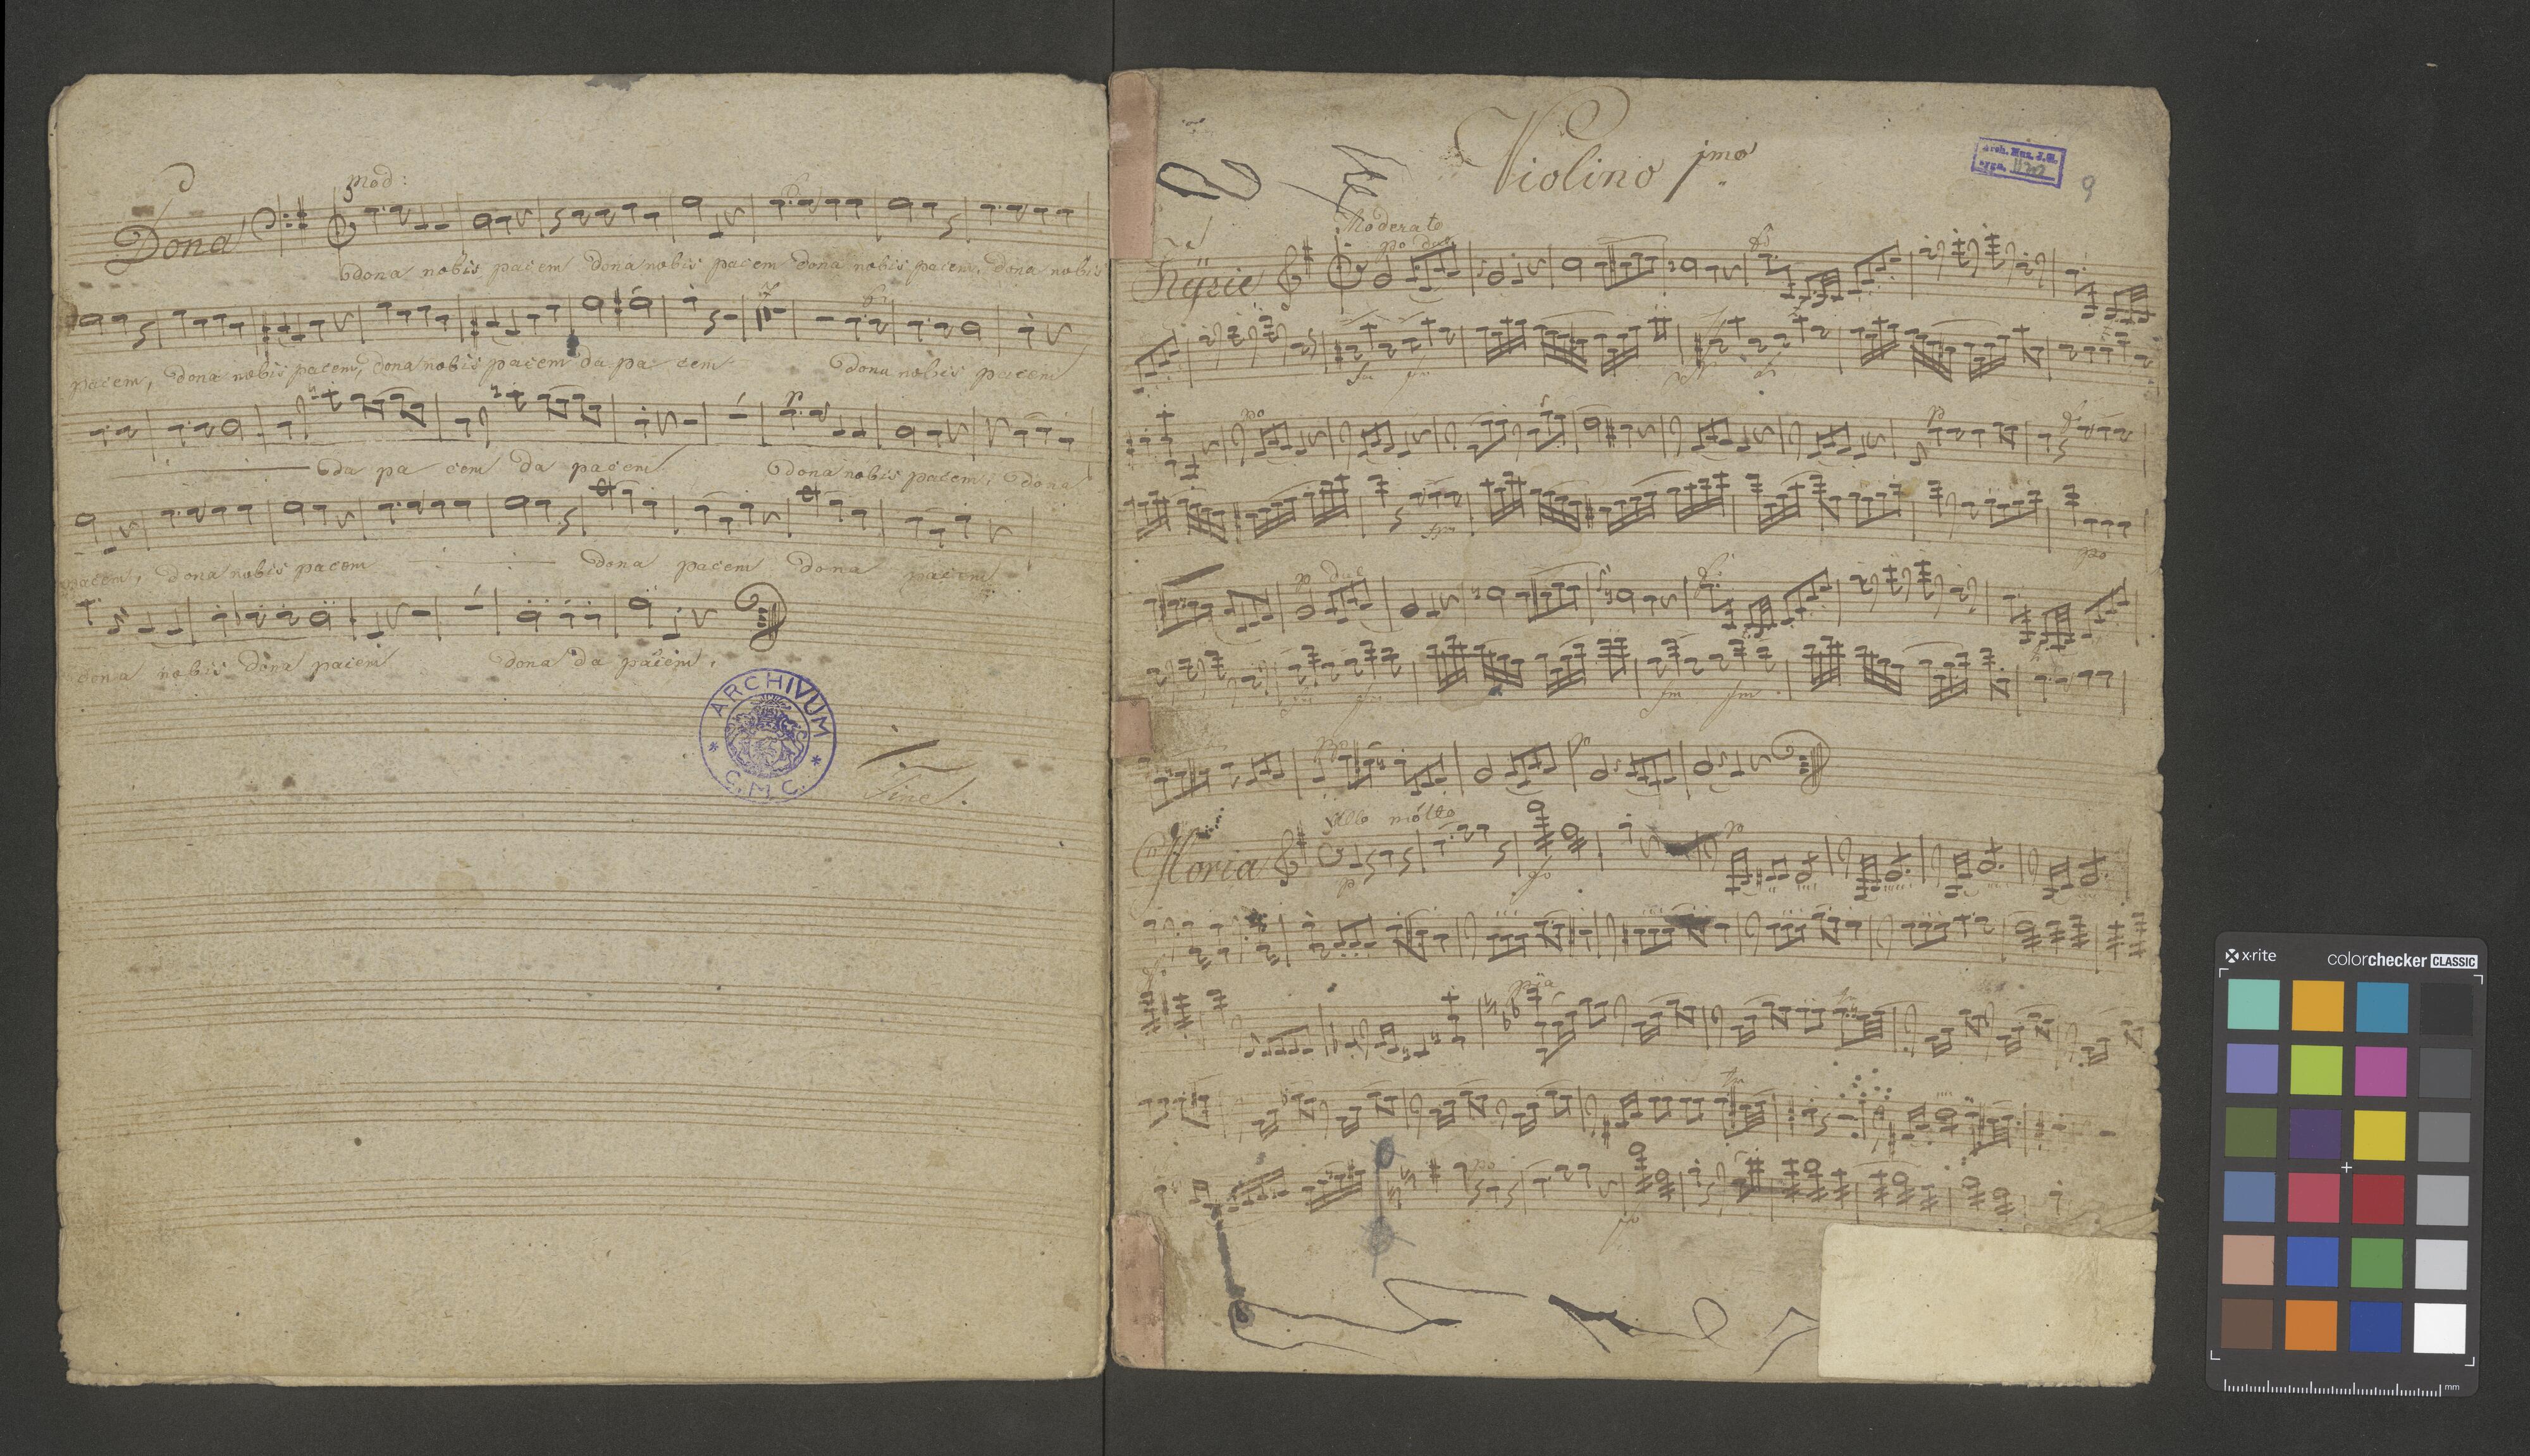 mod:
Dona
dona nobis pacem dona nobis pacem dona nobis pacem, dona nobis
pacem, dona nobis pacem, dona nobis pacem da pa cem dona nobis pacem
da pa cem da pacem dona nobis pacem, dona
pacem, dona nobis pacem dona pacem dona pacem
dona nobis dona pacem dona da pacem,
ARCHIVUM
C.M.C.
Fine.
Violino jmo
Arch. Muz. J.G.
sygn.
9
Moderato
po
Kÿrie
fo
po
p
po
p
fm fm
Allo mólto
Gloria
p
fo
po
pia
po
fo
x·rite
colorchecker CLASSIC
mm